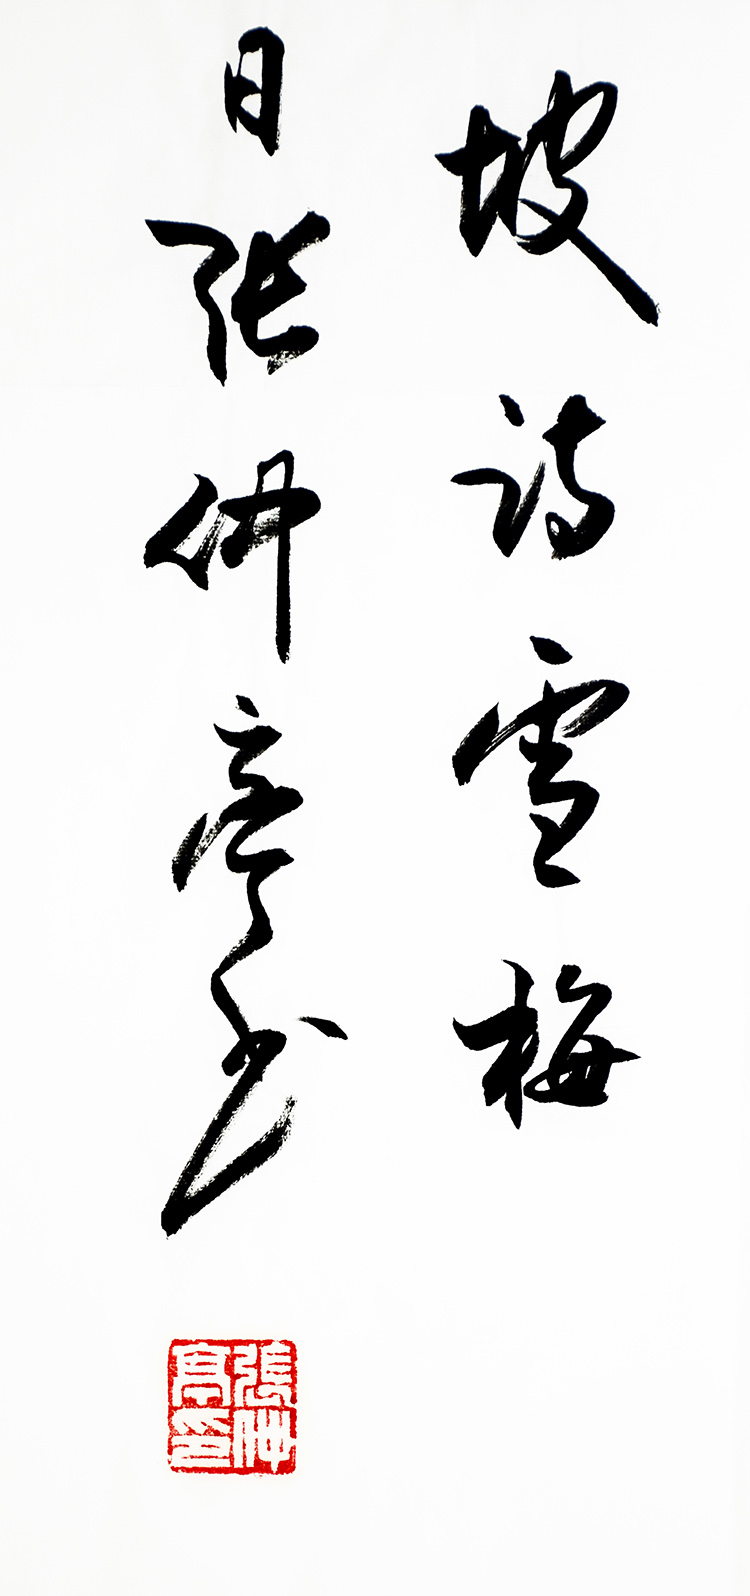 坡诗雪梅
日张仲亭书
張仲
亭印